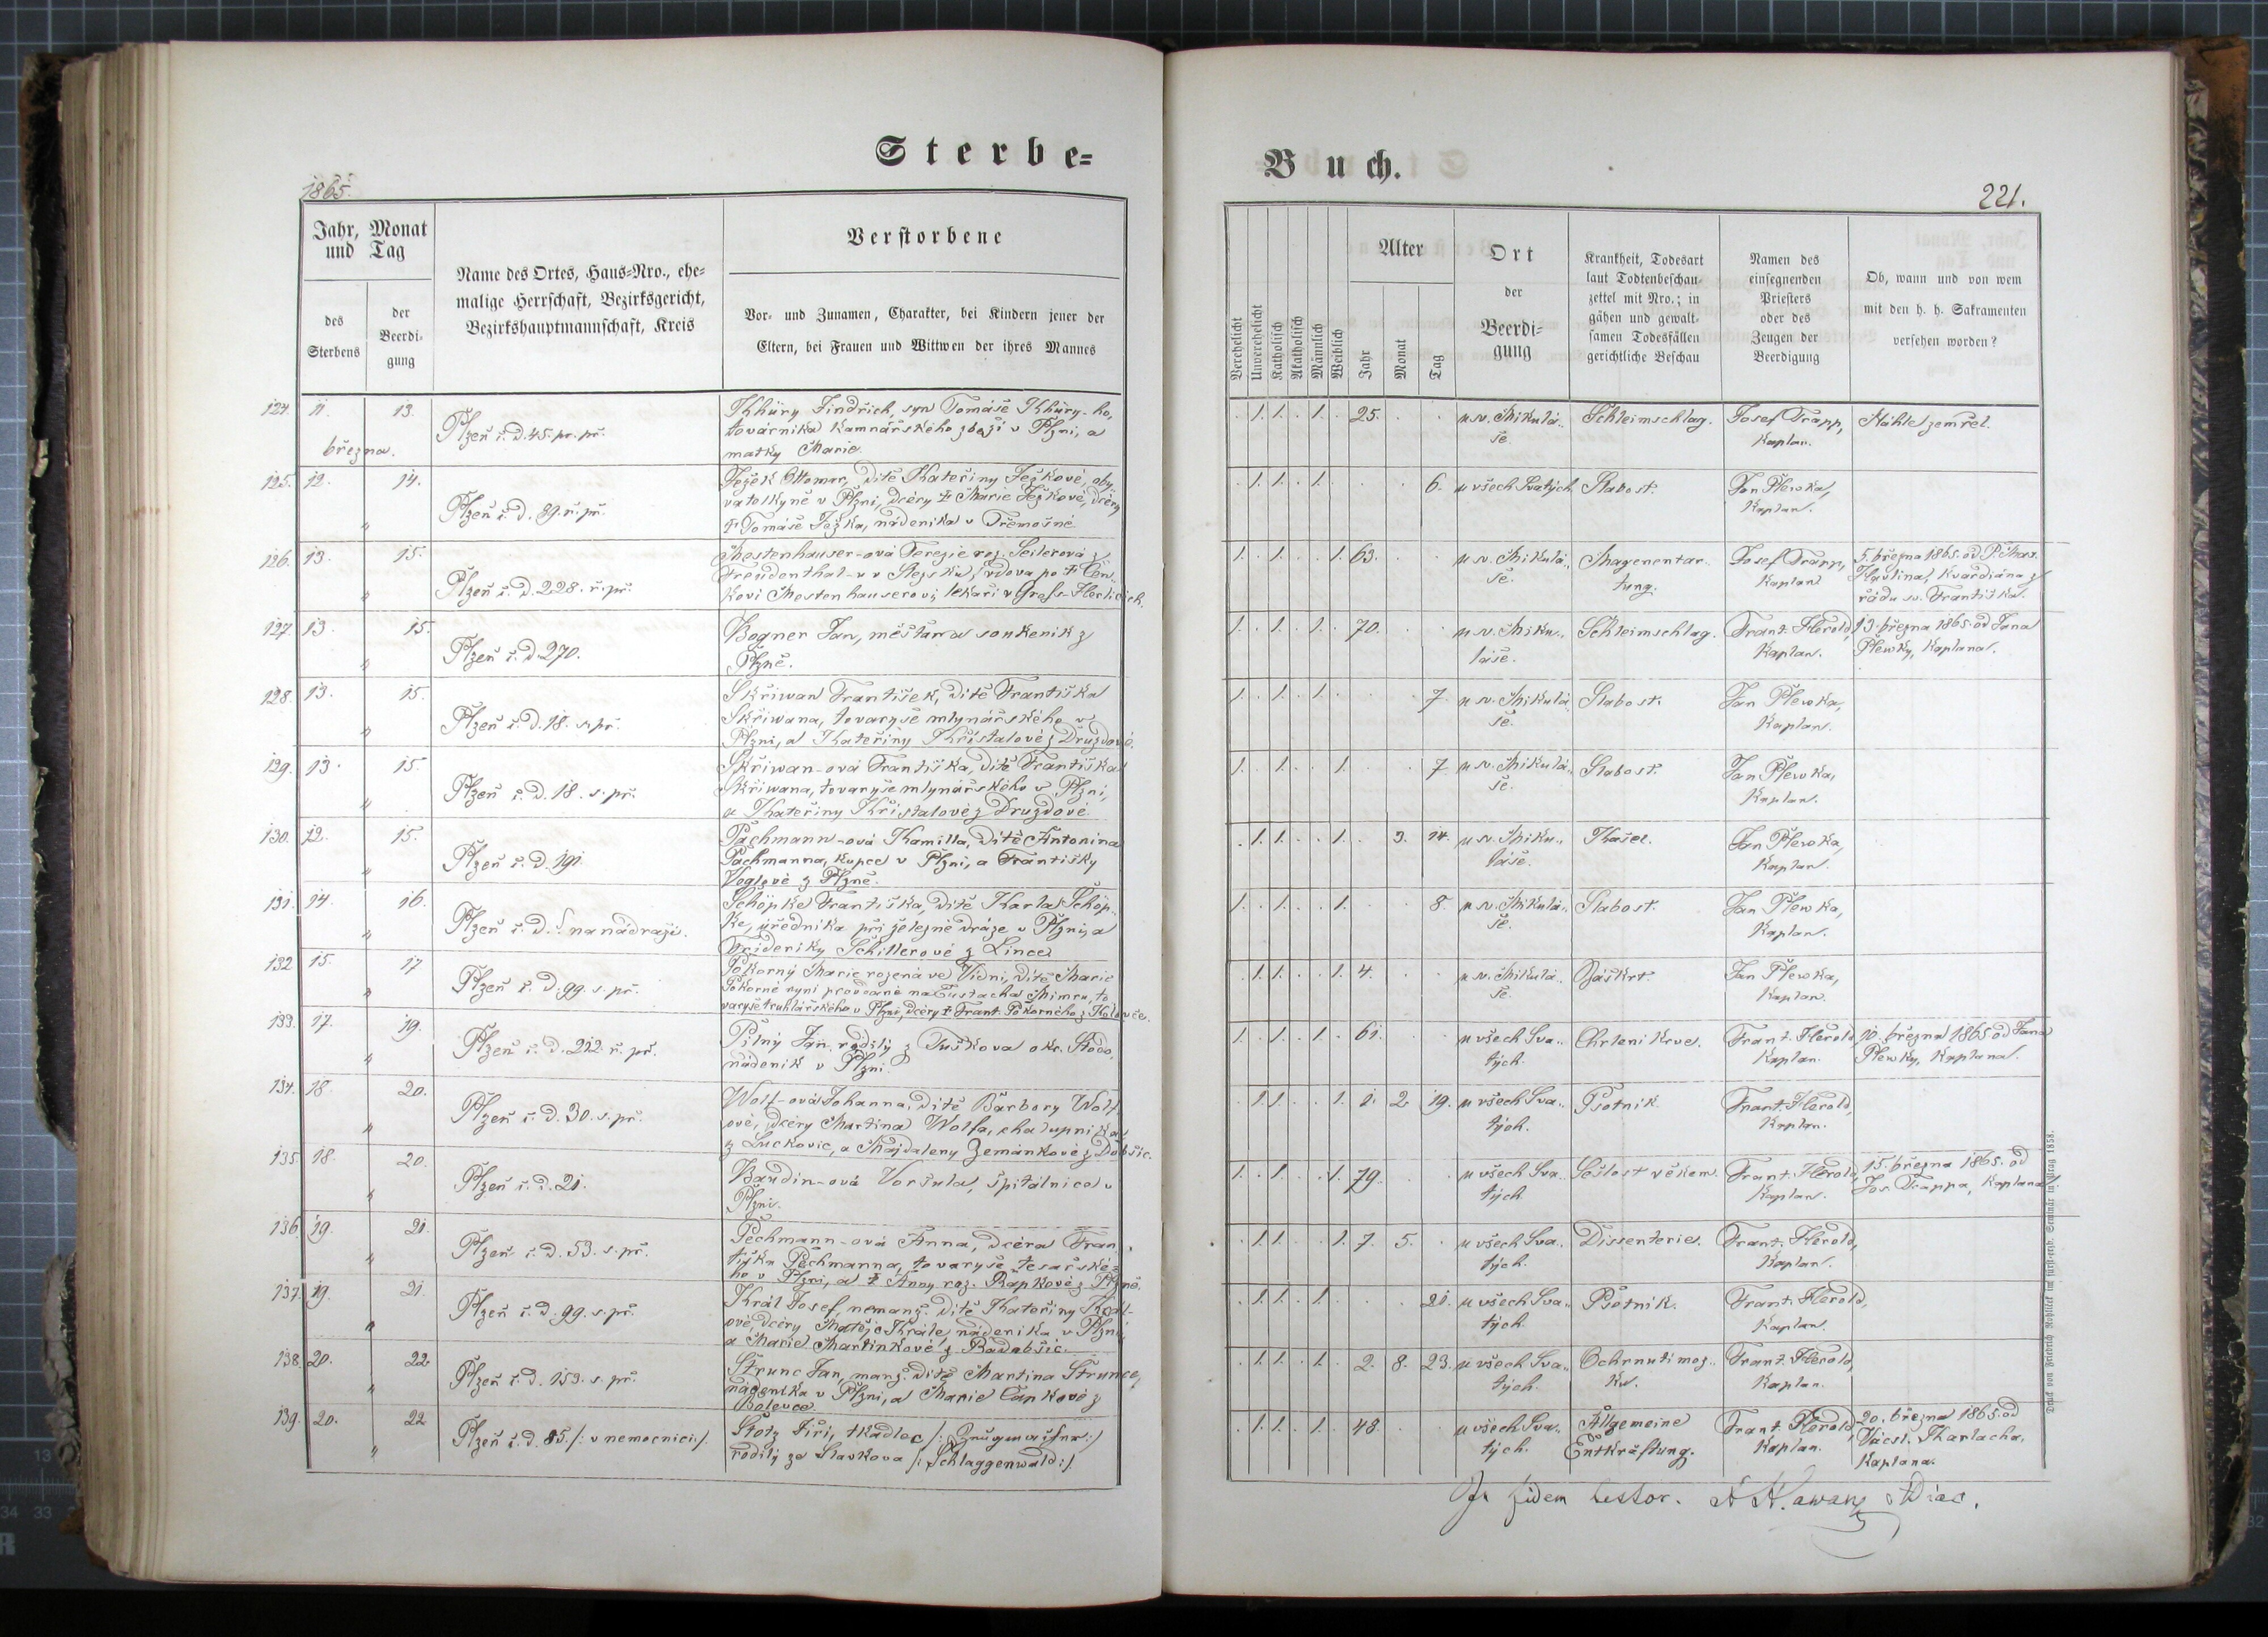 Sterbe=
1865.
Jahr, Monat
und Tag
des
Sterbens
der
Beerdi=
gung
Name des Ortes, Haus=Nro., ehe=
malige Herrschaft, Bezirksgericht,
Bezirkshauptmannschaft, Kreis
Verstorbene
Vor= und Zunamen, Charakter, bei Kindern jener der
Eltern, bei Frauen und Wittwen der ihres Mannes
124. 11. 13.
března.
Plzeň č. d. 45. pr. př.
Khüry Jindřich, syn Tomáše Khüry-ho,
továrníka kamnářského zboží v Plzni, a
matky Marie.
125. 12. 14.
"
Plzeň č. d. 89. ř. př.
Ježek Ottomar, dítě Kateřiny Ježkové, oby-
vatelkyně v Plzni, dcéry † Marie Ježkové, dcéry
† Tomáše Ježka, nádeníka v Třemošné.
126. 13. 15.
"
Plzeň č. d. 228. ř. př.
Mostenhauser-ová Terezie roz. Seilerová z
Freudenthal-u v Slezsku, vdova po † Čen-
kovi Mostenhauserovi, lékaři v Groß-Herlicích.
127. 13. 15.
"
Plzeň č. d. 270.
Bogner Jan, měšťan a soukeník z
Plzně.
128. 13. 15.
"
Plzeň č. d. 18. s. př.
Skřiwan František, dítě Františka
Skřiwana, tovaryše mlynářského v
Plzni, a Kateřiny Křístalové z Druzdové.
129. 13. 15.
"
Plzeň č. d. 18. s. př.
Skřiwan-ová Františka, dítě Františka
Skřiwana, tovaryše mlynářského v Plzni,
a Kateřiny Křistalové z Druzdové
130. 12. 15.
"
Plzeň č. d. 191
Pachmann-ová Kamilla, dítě Antonína
Pachmanna, kupce v Plzni, a Františky
Voglové z Plzně.
131. 14. 16.
"
Plzeň č. d. na nádraží.
Schöpke Františka, dítě Karla Schöp-
ke, úředníka při železné dráze v Plzni, a
Frideriky Schillerové z Lince
132. 15. 17
"
Plzeň č. d. 99. s. př.
Pokorný Marie rozená ve Vídni, dítě Marie
Pokorné nyní provdané na Eustacha Mimru, to
varyše truhlářského v Plzni, dcéry † Frant. Pokorného z Kolovče.
133. 17. 19.
"
Plzeň č. d. 212 ř. př.
Pilný Jan, rodilý z Tuškova okr. Stodo,
nádeník v Plzni.
134. 18. 20.
"
Plzeň č. d. 30. s. př.
Wolf-ová Johanna, dítě Barbory Wolf
ové, dcéry Martina Wolfa, chalupníka
z Luckovic, a Majdaleny Zemankové z Dobšic.
135. 18. 20.
"
Plzeň č. d. 21.
Baudin-ová Voršula, špitálnice v
Plzni.
136. 19. 21.
"
Plzeň č. d. 53. s. př.
Pechmann-ová Anna, dcéra Fran
tiška Pechmanna, tovaryše tesařské-
ho v Plzni, a † Anny roz. Rapkové z Plzně.
137. 19. 21.
"
Plzeň č. d. 99. s. př.
Král Josef, nemanž. dítě Kateřiny Král-
ové, dcéry Matěje Krále, nádeníka v Plzni,
a Marie Martinkové z Radobšic.
138. 20. 22
"
Plzeň č. d. 153. s. př.
Štrunc Jan, manž. dítě Martina Štrunce,
nádeníka v Plzni, a Marie Čapkové z
Bolevce.
139. 20. 22
"
Plzeň č. d. 85 /: v nemocnici:/.
Štotz Jiří, tkadlec /: Zeugmacher:/
rodilý ze Slavkova /: Schlaggenwald:/.
Buch.
221.
Verehelicht
Unverehelicht
Katholisch
Akatholisch
Männlich
Weiblich
Alter
Jahr
Monat
Tag
Ort
der
Beerdi=
gung
Krankheit, Todesart
laut Todtenbeschau=
zettel mit Nro.; in
gähen und gewalt=
samen Todesfällen
gerichtliche Beschau
Namen des
einsegnenden
Priesters
oder des
Zeugen der
Beerdigung
Ob, wann und von wem
mit den h. h. Sakramenten
versehen worden?
. 1. 1. . 1. . 25. . . u sv. Mikulá- Schleimschlag. Josef Trapp, Náhle zemřel.
še. Kaplan.
. 1. 1. . 1. . . . 6. u všech Svatých Slabost. Jan Plewka,
Kaplan.
1. . 1. . . 1. 63. . . u sv. Mikulá- Magenentar- Josef Trapp, 5. března 1865. od P. Mar.
še. tung. Kaplan Havlina, kvardiána z
řádu sv. Františka.
1. . 1. . 1. . 70. . . u sv. Miku- Schleimschlag. Frant. Herold, 13. března 1865. od Jana
láše. Kaplan. Plewky, Kaplana.
1. . 1. . 1. . . . 7. u sv. Mikulá- Slabost. Jan Plewka,
še. Kaplan.
1. . 1. . . 1. . . 7 u sv. Mikulá- Slabost. Jan Plewka,
še. Kaplan.
. 1. 1. . . 1. . 3. 14. u sv. Miku- Kašel. Jan Plewka,
láše. Kaplan.
1. . 1. . . 1. . . 8. u sv. Mikulá- Slabost. Jan Plewka,
še. Kaplan.
. 1. 1. . . 1. 4. . . u sv. Mikulá- Záškrt. Jan Plewka,
še. Kaplan.
1. . 1. . 1. . 61. . . u všech Sva- Chrlení krve. Frant. Herold, 10. března 1865 od Jana
tých. Kaplan. Plewky, Kaplana.
. 1. 1. . . 1. 1. 2 19. u všech Sva- Psotník. Frant. Herold,
tých. Kaplan.
1. . 1. . . 1. 79. . . u všech Sva- Sešlost věkem. Frant. Herold, 15. března 1865. od
tých Kaplan. Jos. Trappa, Kaplana
. 1. 1. . . 1. 7. 5. . u všech Sva- Dissenterie. Frant. Herold,
tých. Kaplan.
. 1. 1. . 1. . . . 21. u všech Sva- Psotník. Frant. Herold,
tých. Kaplan.
. 1. 1. . 1. . 2. 8. 23. u všech Sva- Ochrnutí moz- Frant. Herold,
tých. ku. Kaplan.
. 1. 1. . 1. . 48. . . u všech Sva- Allgemeine Frant. Herold, 20. března 1865. od
tých. Entkräftung. Kaplan. Vácsl. Tharlacha,
Kaplana.
In fidem testor.
Druck von Friedrich Rohliček im fürst=erzb. Seminär in Prag 1858.